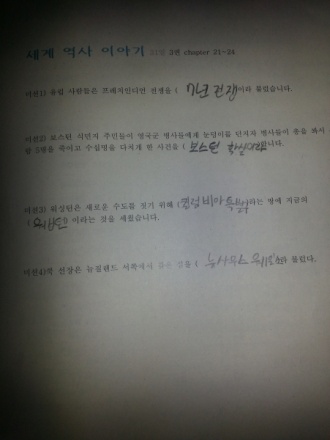 세계 역사 이야기 3권 chapter 21~24
미션1) 유럽 사람들은 프렌치인디언 전쟁을 ( 7년 전쟁이라 불렀습니다.
미션2) 보스턴 식민지 주민들이 영국군 병사들에게 눈덩이를 던지자 병사들이 총을 쏴서
5명을 죽이고 수십명을 다치게 한 사건을 ( 보스턴 학살 니다.
미션3) 워싱턴은 새로운 수도를 짓기 위해 (컬럼비아 라는 땅에 지금의
( 워싱턴) 이라는 것을 세웠습니다.
미션4)쿡 선장은 뉴질랜드 서쪽에서 ( 뉴사우스 웨일 라 불렀다.